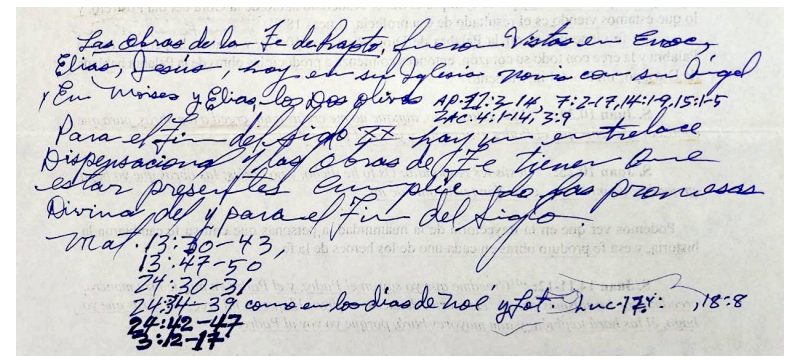 Las obras de la Fe de Rapto, fueron Vistas en Enoc,
Elías, Jesús, hoy en su Iglesia novia con su Ángel
y En Moises y Elias, los Dos olivos AP. 11:3-14, 7:2-17, 14:1-9, 15:1-5
ZAC. 4:1-14; 3:9
Para el fin del siglo XX hay un entrelace
Dispensacional y las Obras de Fe tienen que
estar presentes cumpliendo las promesas
Divina del y para el Fin del Siglo.
Mat. 13:30-43,
13:47-50
24:30-31
24:34-39 como en los días de Noé y Lot. Luc. 17: , 18:8
24:42-47
3:12-17